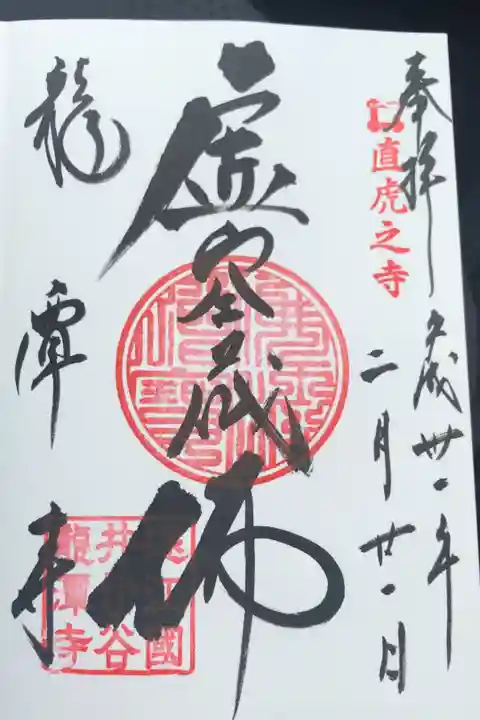 奉拝
直虎之寺
平成卅一年
二月廿一日
虚空蔵佛
龍潭寺
遠江國
井伊谷
龍潭寺